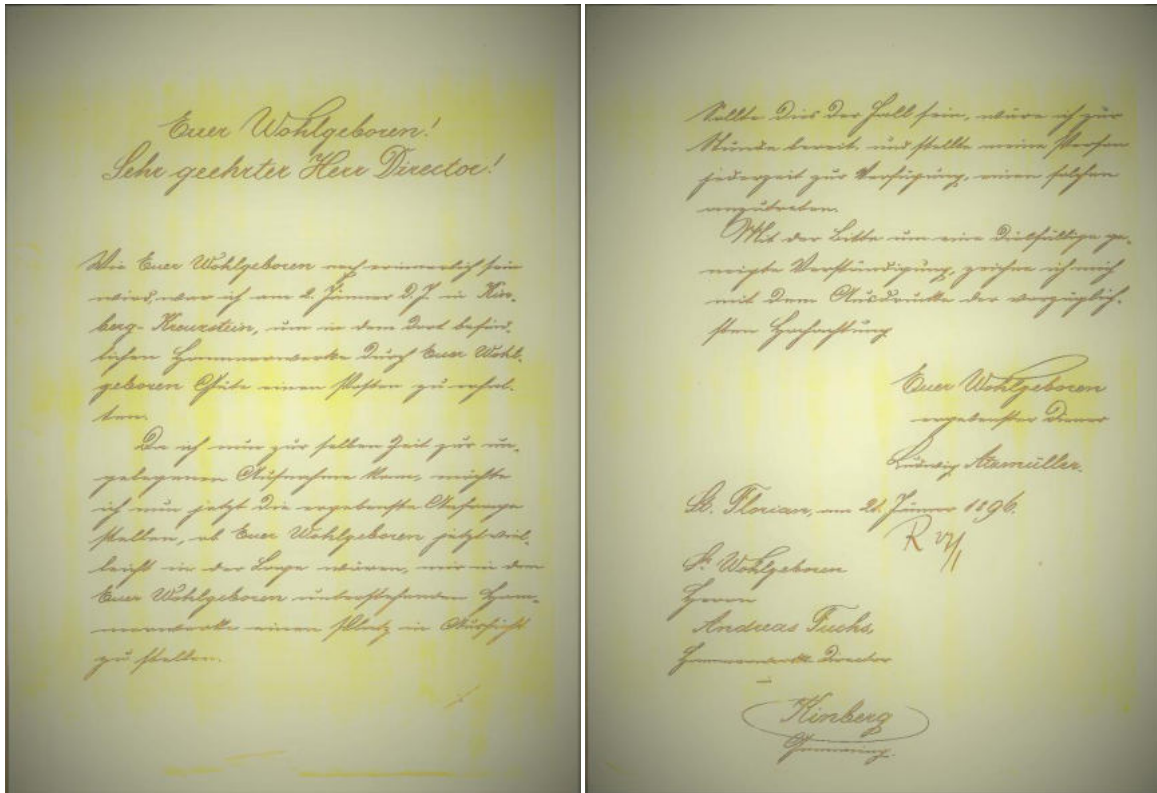 Euer Wohlgeboren!
Sehr geehrter Herr Director!
Wie Euer Wohlgeboren noch erinnerlich sein
wird, war ich am 2. Jänner d. J. in Kin-
berg-Kreuzstein, um in dem dort befind-
lichen Hammerwerke durch Euer Wohl-
geboren Güte einen Posten zu erhal-
ten.
Da ich nun zur selben Zeit zur un-
gelegenen Aufnahme kam, möchte
ich nun jetzt die ergebenste Anfrage
stellen, ob Euer Wohlgeboren jetzt viel-
leicht in der Lage wären, mir in dem
Euer Wohlgeboren unterstehenden Ham-
merwerke einen Platz in Aussicht
zu stellen.
Sollte dies der Fall sein, wäre ich zur
Stunde bereit und stellte meine Person
jederzeit zur Verfügung, einen solchen
anzutreten.
Mit der Bitte um eine diesfällige ge-
neigte Verständigung, zeichne ich mich
mit dem Ausdrucke der vorzüglich-
sten Hochachtung
Euer Wohlgeboren
ergebenster Diener
Ludwig Atzmüller.
St. Florian, am 21. Jänner 1896.
Sr. Wohlgeboren
Herrn
Andreas Fuchs,
Hammerwerks Director
Kinberg